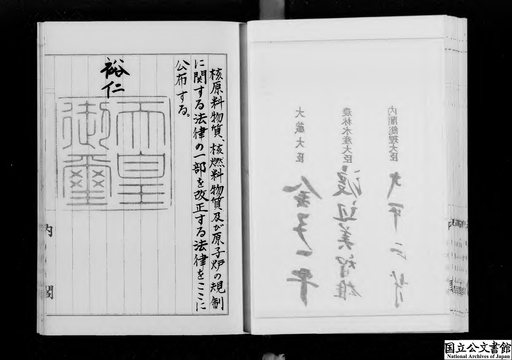 核原料物質、核燃料物質及び原子炉の規制
に関する法律の一部を改正する法律をここに
公布する。
裕仁
天皇
御璽
内閣
内閣総理大臣
大平正芳
農林水産大臣
渡辺美智雄
大蔵大臣
金子一平
国立公文書館
National Archives of Japan